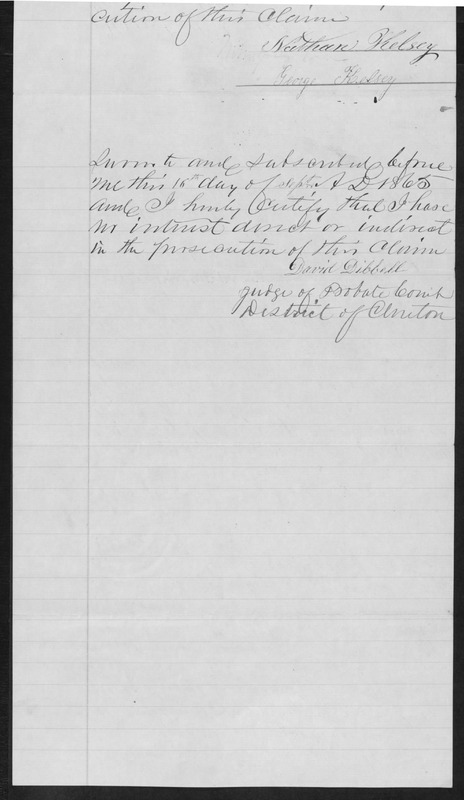 cution of this Claim
Nathan Kelsey
George Kelsey
Sworn to and subscribed before
me this 15th day of Sept A D 1865
and I hereby Certify that I have
no interest direct or indirect
in the prosecution of this Claim
David Dibbell
Judge of Probate Court
District of Clinton